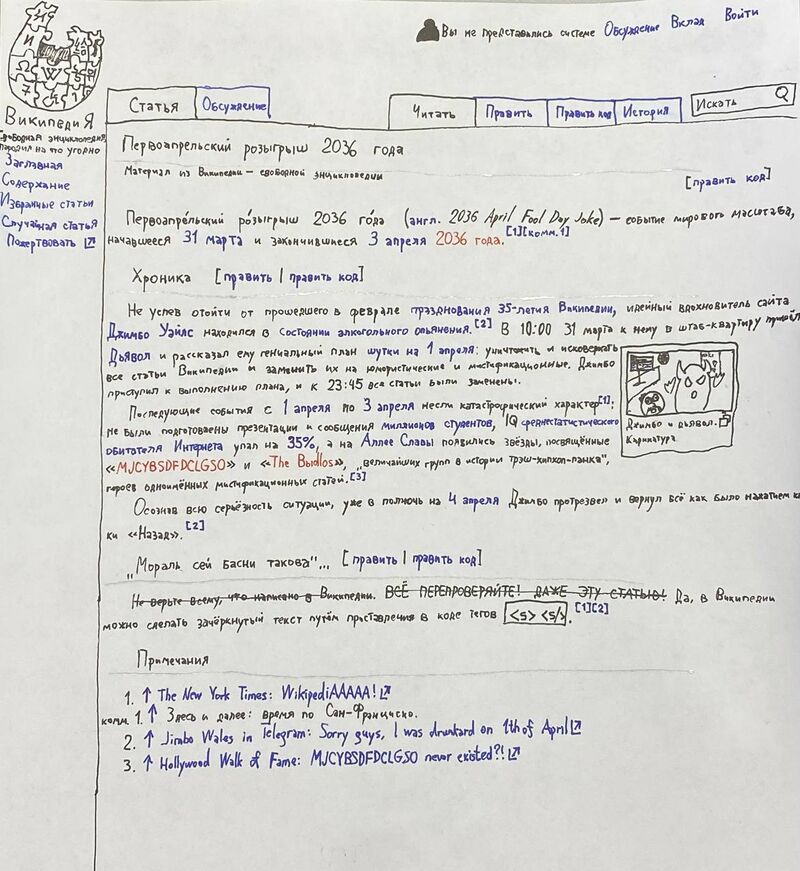 Вы не представились системе Обсуждение Вклад Войти
Статья Обсуждение Читать Править Править код История Искать
ВикипедиЯ
свободная энциклопедия,
пародия на что угодно
Заглавная
Содержание
Избранные статьи
Случайная статья
Пожертвовать
Первоапрельский розыгрыш 2036 года
Материал из Википедии — свободной энциклопедии
[править код]
Первоапре́льский ро́зыгрыш 2036 го́да (англ. 2036 April Fool Day Joke) — событие мирового масштаба,
начавшееся 31 марта и закончившееся 3 апреля 2036 года.[1][комм.1]
Хроника [править | править код]
Не успев отойти от прошедшего в феврале празднования 35-летия Википедии, идейный вдохновитель сайта
Джимбо Уэйлс находился в состоянии алкогольного опьянения.[2] В 10:00 31 марта к нему в штаб-квартиру
Дьявол и рассказал ему гениальный план шутки на 1 апреля: уничтожить и исковеркать
все статьи Википедии и заменить их на юмористические и мистификационные. Джимбо
приступил к выполнению плана, и к 23:45 все статьи были заменены.
Джимбо и дьявол.
Карикатура
Последующие события с 1 апреля по 3 апреля несли катастрофический характер[1]:
не были подготовены презентации и сообщения миллионов студентов, IQ среднестатистического
обитателя Интернета упал на 35%, а на Аллее Славы появились звёзды, посвящённые
«MJCYBSDFDCLGSO» и «The Bыdlos», „величайших групп в истории трэш-хипхоп-панка“,
героев одноимённых мистификационных статей.[3]
Осознав всю серьёзность ситуации, уже в полночь на 4 апреля Джимбо протрезвел и вернул всё как было нажатием
ки «Назад».[2]
„Мораль сей басни такова“... [править | править код]
Не верьте всему, что написано в Википедии. ВСЁ ПЕРЕПРОВЕРЯЙТЕ! ДАЖЕ ЭТУ СТАТЬЮ! Да, в Википедии
можно сделать зачёркнутый текст путём приставления в коде тегов <s> <s/>.[1][2]
Примечания
1. ↑ The New York Times: WikipediAAAAA!
комм. 1. ↑ Здесь и далее: время по Сан-Франциско.
2. ↑ Jimbo Wales in Telegram: Sorry guys, I was drunkard on 1th of April
3. ↑ Hollywood Walk of Fame: MJCYBSDFDCLGSO never existed?!